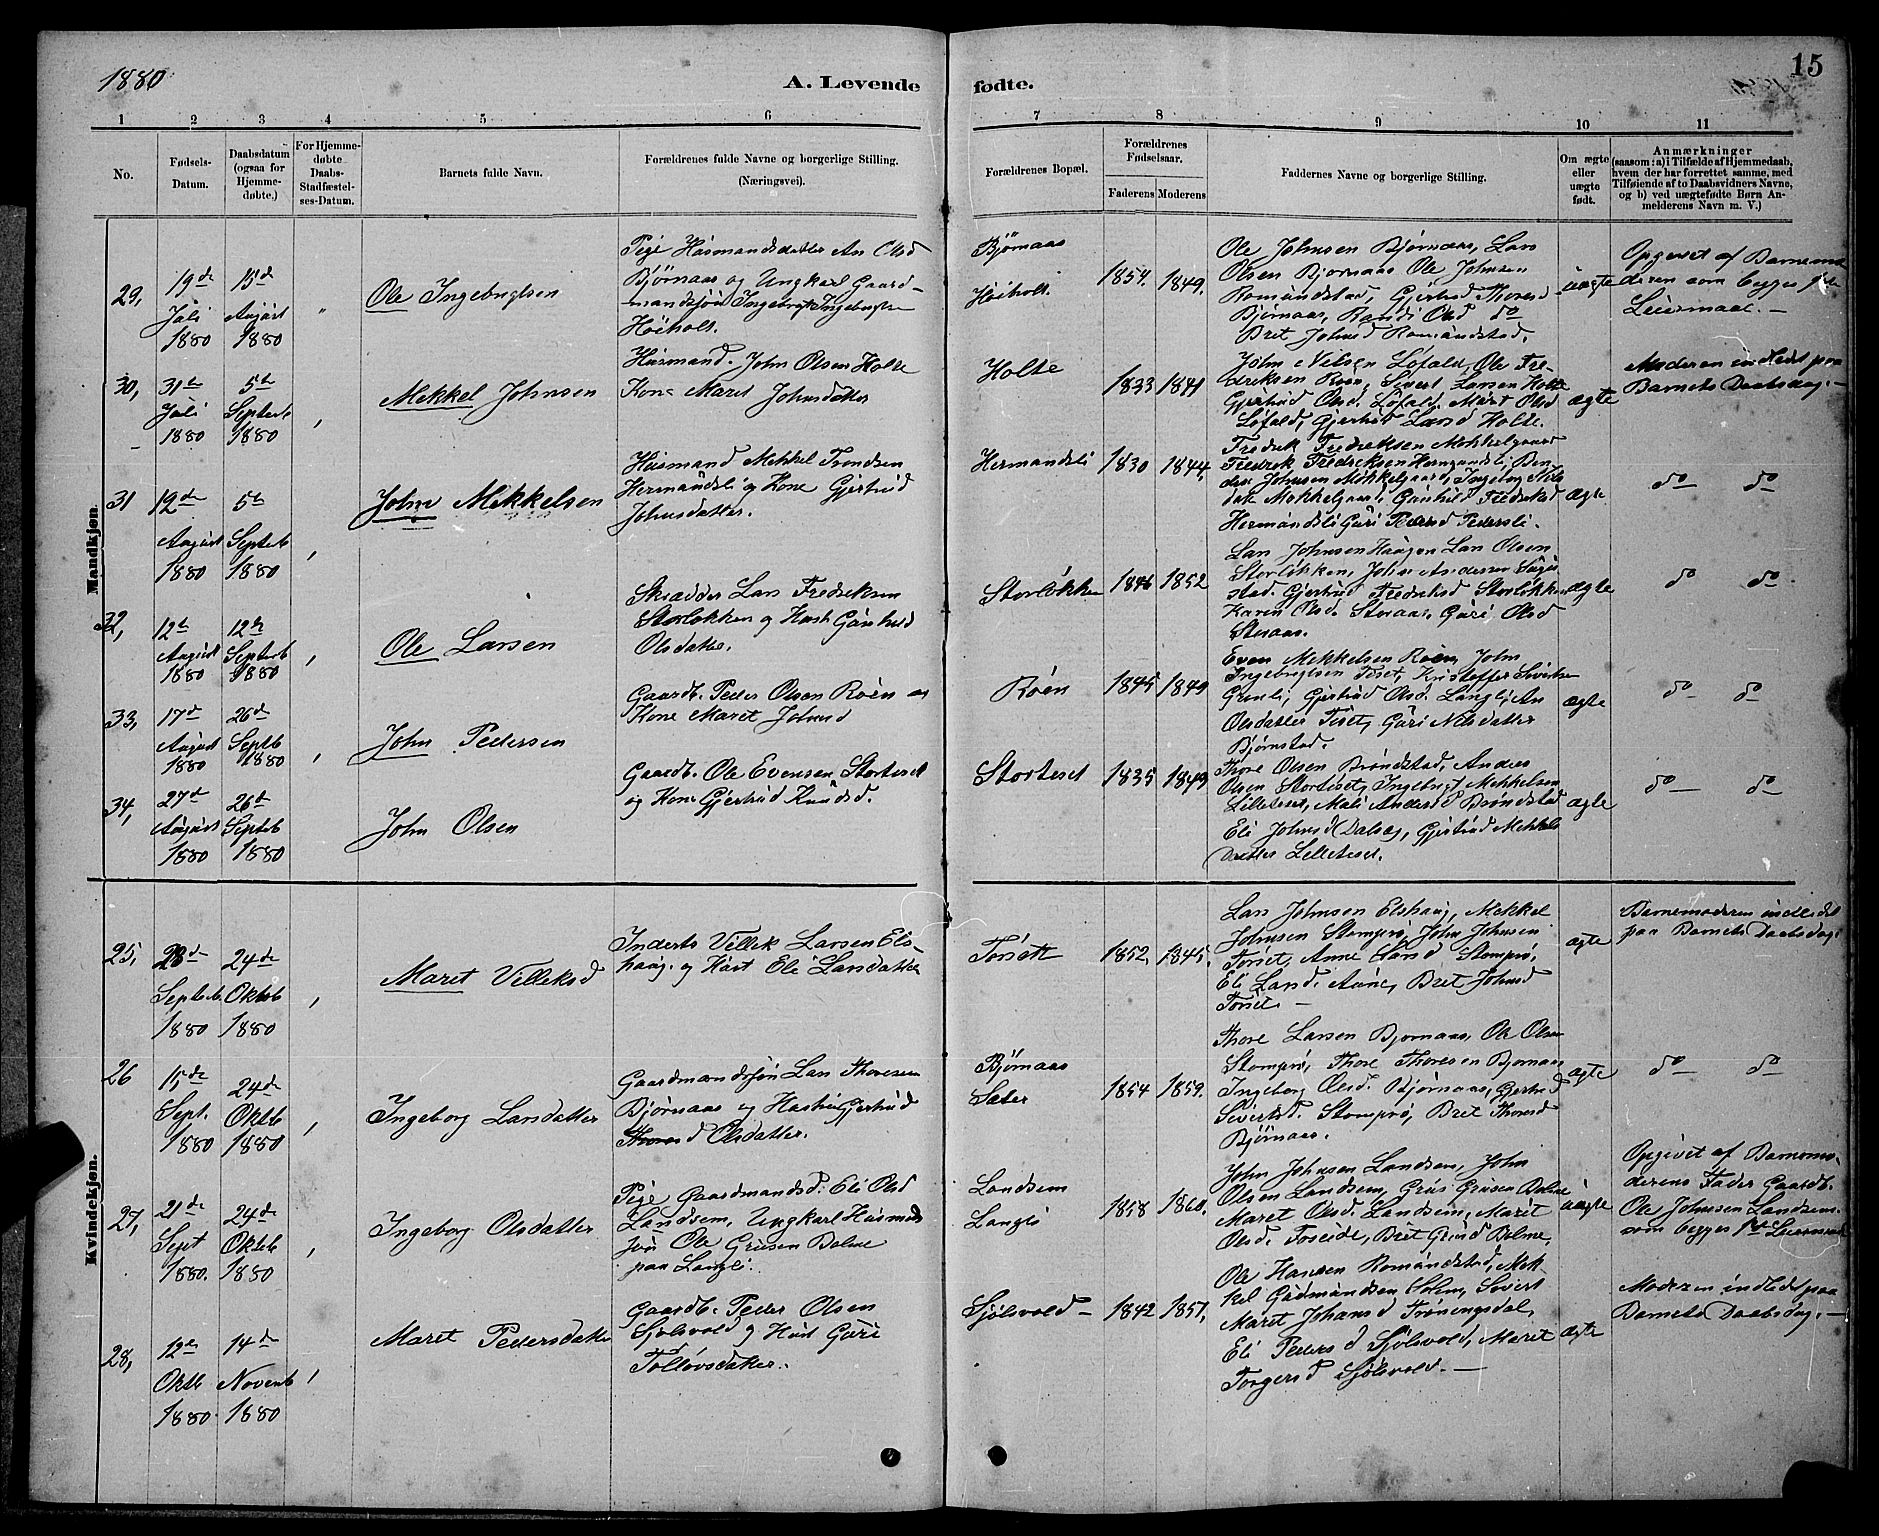 1880
A. Levende
fødte.
15
1 2 3 4 5 6
7 8 9 10 11
No.
Fødsels-
Datum.
Daabsdatum
(ogsaa for
Hjemme-
døbte.)
For Hjemme-
døbte
Daabs-
Stadfæstel-
ses-Datum.
Barnets fulde Navn.
Forældrenes fulde Navne og borgerlige Stilling.
(Næringsvei).
Forældrenes Bopæl.
Forældrenes
Fødselsaar.
Faderens Moderens
Faddernes Navne og borgerlige Stilling.
Om ægte
eller
uægte
født.
Anmærkninger
(saasom: a) i Tilfælde af Hjemmedaab,
hvem der har forrettet samme, med
Tilføiende af to Daabsvidners Navne,
og b) ved uægtefødte Børn An-
melderens Navn m. V.)
Mandkjøn.
29,
19de
Juli
1880
15de
August
1880
"
Ole Ingebrigtsen
Pige Husmandsdatter An Olsd
Bjørnaas og Ungkarl Gaard-
mandssøn Ingebrigt Ingebrigtsen
Høiholt.
Bjørnaas
Høiholt.
1854. 1849.
Ole Johnsen Bjørnaas, Lars
Olsen Bjørnaas Ole Johnsen
Romundstad, Gjertrud Thoresd
Bjørnaas, Randi Olsd do
Bret Johnsd Romundstad.
uægte
Opgivet af Barnemo
deren som begges 1ste
Leiermaal. —
30,
31te
Juli
1880
5te
Septerb
1880
Mekkel Johnsen
Husmand. John Olsen Holte
Kone Maret Johnsdatter
Holte
1833 1841
John Nilsen Løfald, Ole Fre-
driksen Roen, Sivert Larsen Holte
Gjertrud Olsd. Løfald, Maret Olsd
Løfald, Gjertrud Larsd Holte.
ægte
Moderen indledt paa
Barnets Daabsdag. —
31
19de
August
1880
5te
Septerb
1880
John Mekkelsen
Husmand Mekkel Trondsen
Hermandsli og Kone Gjertrud
Johnsdatter.
Hermandsli
1830 1844,
Fredrik Fredriksen Mekkelgaard
Fredrik Fredriksen Hermandsli, Ben-
dix Johnsen Mekkelgaard, Ingeborg Nils
dat. Mekkelgaard, Gunhild Fredriksd
Hermandsli Guri Pedersd Pedersli.
ægte
do do
32,
12te
August
1880
12te
Septerb
1880
Ole Larsen
Skrædder Lars Fredriksen
Storløkken og Hust Gunhild
Olsdatter.
Storløkken
1846 1852
Lars Johnsen Haugen Lars Olsen
Storløkken, John Andersen
stad. Gjertrud Fredriksd Storløkken
Karen Olsd. Storaas, Guri Olsd
Storaas.
ægte
do do
33,
17de
August
1880
26de
Septb
1880
John Pedersen
Gaardb. Peder Olsen Roen og
Kone Maret Johnsd
Roen
1845 1849
Even Mekkelsen Roen, John
Ingebrigtsen Toset, Kristoffer Sivertsen
Grønli, Gjertrud Olsd. Langli, An
Olsdatter Toset, Guri Nilsdatter
Bjørnstad.
ægte
do do
34,
27de
August
1880
26de
Septb
1880
John Olsen
Gaardb. Ole Evensen Storteset
og Kone Gjertrud Knudsd.
Storteset
1835 1849
Thore Olsen Brøndstad, Anders
Olsen Storteset, Ingebrigt Mekkelsen
Lilleteset, Mali Andersd Brøndstad
Eli Johnsd Dalsæg, Gjertrud Mekkels
datter Lilleteset.
ægte
do do
Kvindekjøn.
25,
28de
Septeb.
1880
24de
Oktob
1880
Maret Villeksd
Inderst. Villek Larsen Els-
haug. og Hust Eli Larsdatter
Torsett
1852 1845.
Lars Johnsen Elshaug, Mekkel
Johnsen Stompro, John Johnsen
Torset, Anne Larsd Stompro,
Eli Larsd. Aune, Bret Johnsd
Torset. —
ægte
Barnemoderen indledet
paa Barnets Daabsdag
26
15de
Sept.
1880
24de
Oktb
1880
Ingeborg Larsdatter
Gaardmandssøn Lars Thoresen
Bjørnaas og Hustru Gjertrud
Thoresd Olsdatter.
Bjørnaas
Sæter
1854 1859.
Thore Larsen Bjørnaas, Ole Olsen
Stompro, Thore Thoresen Bjørnaas
Ingeborg Olsd. Bjørnaas, Gjertrud
Sivertsd. Stompro, Bret Thoresd
Bjørnaas.
ægte
do do
27,
21de
Sept
1880.
24de
Oktb
1880
Ingeborg Olsdatter
Pige Gaardmandsd: Eli Olsd
Landsem, Ungkarl Husmds
søn Ole Grusen Bolme
paa Langli.
Landsem
Langli
1858 1860.
John Johnsen Landsem, John
Olsen Landsem, Grus Grusen Bolme
Maret Olsd. Landsem, Marit
Olsd. Foseide, Bret Grusd Bolme.
uægte
Opgivet af Barnemo-
derens Fader Gaardb.
Ole Johnsen Landsem
som begges 1ste Leiermaal
28,
12te
Oktb
1880
14de
Novemb
1880
Maret Pedersdatter
Gaardb. Peder Olsen
Sjølsvold og Hust Guri
Tollevsdatter.
Sjølsvold —
1842 1851,
Ole Hansen Romundstad, Mek-
kel Gudmundsen Solem, Sivert
Maret Johansd Trønengsdal,
Eli Pedersd Sjølsvold, Maret
Torgersd Sjølsvold. —
ægte
Moderen indledt paa
Barnets Daabsdag. —